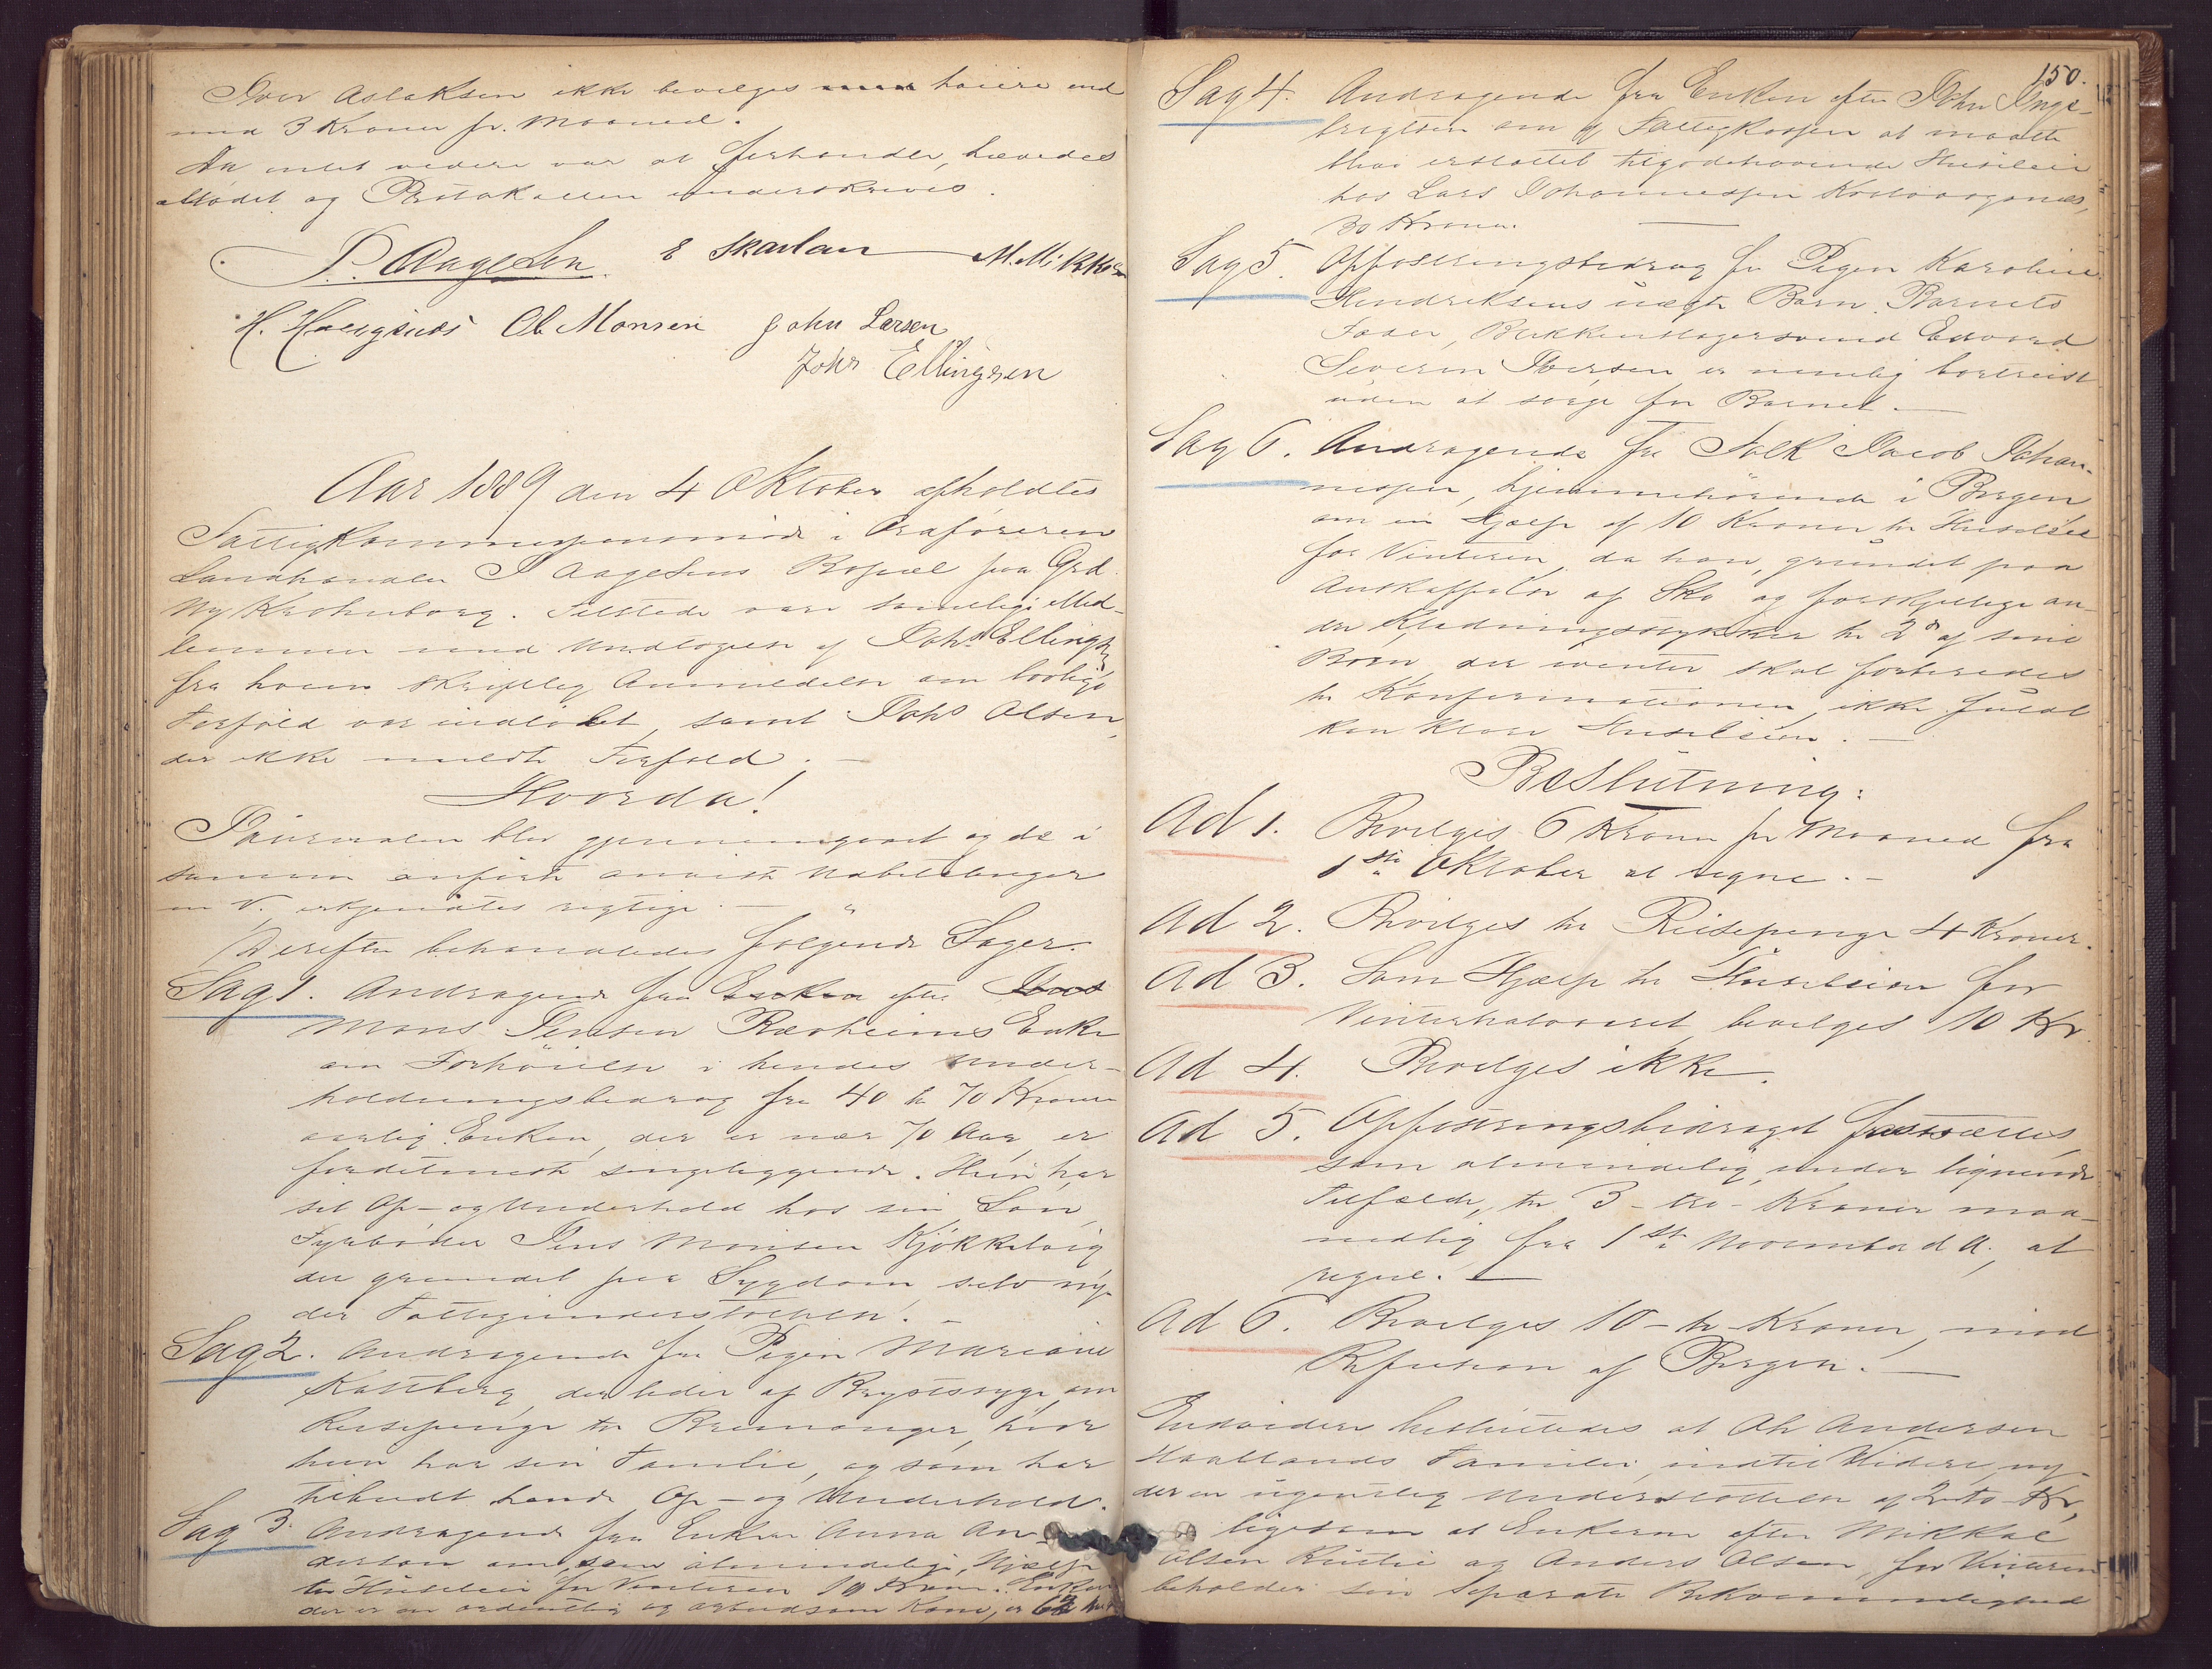 Iver Aslaksen ikke bevilges høiere end
med 3 Kroner pr. Maaned.
Da intet videre var at forhandle, hævedes
Mødet og Protokollen underskreves.
P. Aagesen. E Skarlan M. Mikk
H. Haugsnes Ol Monsen John Larsen
Johs Ellingsen
Aar 1889 den 4 Oktober afholdtes
Fattigkommissionsmøde i Ordføreren
Landhandler P Aagesens Bopæl paa Grd.
Ny Krohnborg. Tilstede vare samtlige Med-
lemmer med Undtagelse af Johs Ellings
fra hvem skriftlig Anmeldelse om lovligt
Forfald var indløbet, samt Johs Olsen,
der ikke meldte Forfald. —
Hvorda!
Journalen blev gjennemgaaet og de i
samme anførte anviste Udbetalinger
erkjendtes rigtige. —
Derefter behandledes følgende Sager.
Sag 1. Andragende fra Enken efter Jens
Mons Jensen Rævheims Enke
om Forhøielse i hendes Under-
holdningsbidrag fra 40 til 70 Kroner
aarlig. Enken, der er nær 70 Aar, er
fordetmeste sengeliggende. Hun har
sit Op- og Underhold hos sin Søn,
Fyrbøder Jens Monsen Kjøkkelvig
der grundet paa Sygdom selv ny-
der Fattigunderstøttelse. —
Sag 2. Andragende fra Pigen Mariane
Kastberg, der lider af Brystsyge, om
Reisepenge til Bremanger, hvor
hun har sin Familie, og som har
tilbudt hende Op- og Underhold.
Sag 3. Andragende fra Enken Anna An-
derson om, som almindelig, Hjælp
til Husleie for Vinteren 10 Kroner. Enken
der er en ordentlig og arbeidsom Kone, er
150.
Sag 4. Andragende fra Enken efter John Inge-
brigtsen om af Fattigkassen at maatte
blive erstattet tilgodehavende Husleie
hos Lars Johannessen
30 Kroner. —
Sag 5. Opfostringsbidrag for Pigen Karoline
Hendriksens uægte Barn. Barnets
Fader, Blikkenslagersvend Edvard
Severin Iversen er nemlig bortreist
uden at sørge for Barnet. —
Sag 6. Andragende fra Falk Jacob Johan-
nessen, hjemmehørende i Bergen
om en Hjælp af 10 Kroner til Husleie
for Vinteren, da han, grundet paa
Anskaffelse af Sko og forskjellige an-
dre Klædningsstykker til 2de af sine
Børn, der ivinter skal forberedes
til Konfirmationen, ikke fuldt
kan klare Husleien. —
Beslutning:
Ad 1. Bevilges 6 Kroner pr Maaned fra
1ste Oktober at regne. —
Ad 2. Bevilges til Reisepenge 4 Kroner.
Ad 3. Som Hjælp til Husleien for
Vinterhalvaaret bevilges 10 Kr.
Ad 4. Bevilges ikke.
Ad 5. Opfostringsbidraget fastsættes,
som almindelig under lignende
Tilfælde, til 3 – tre – Kroner maa-
nedlig fra 1ste November d. A. at
regne. —
Ad 6. Bevilges 10 – ti – Kroner, mod
Refusion af Bergen. —
Endvidere besluttedes at Ole Andersen
Haallands Familie, indtil Videre, ny-
der en ugentlig Understøttelse af 2 – to – Kr,
ligesom at Enkerne efter Mikkal
Olsen og Anders Olsen, for Vinteren
beholder sin separate Bekvemmelighed